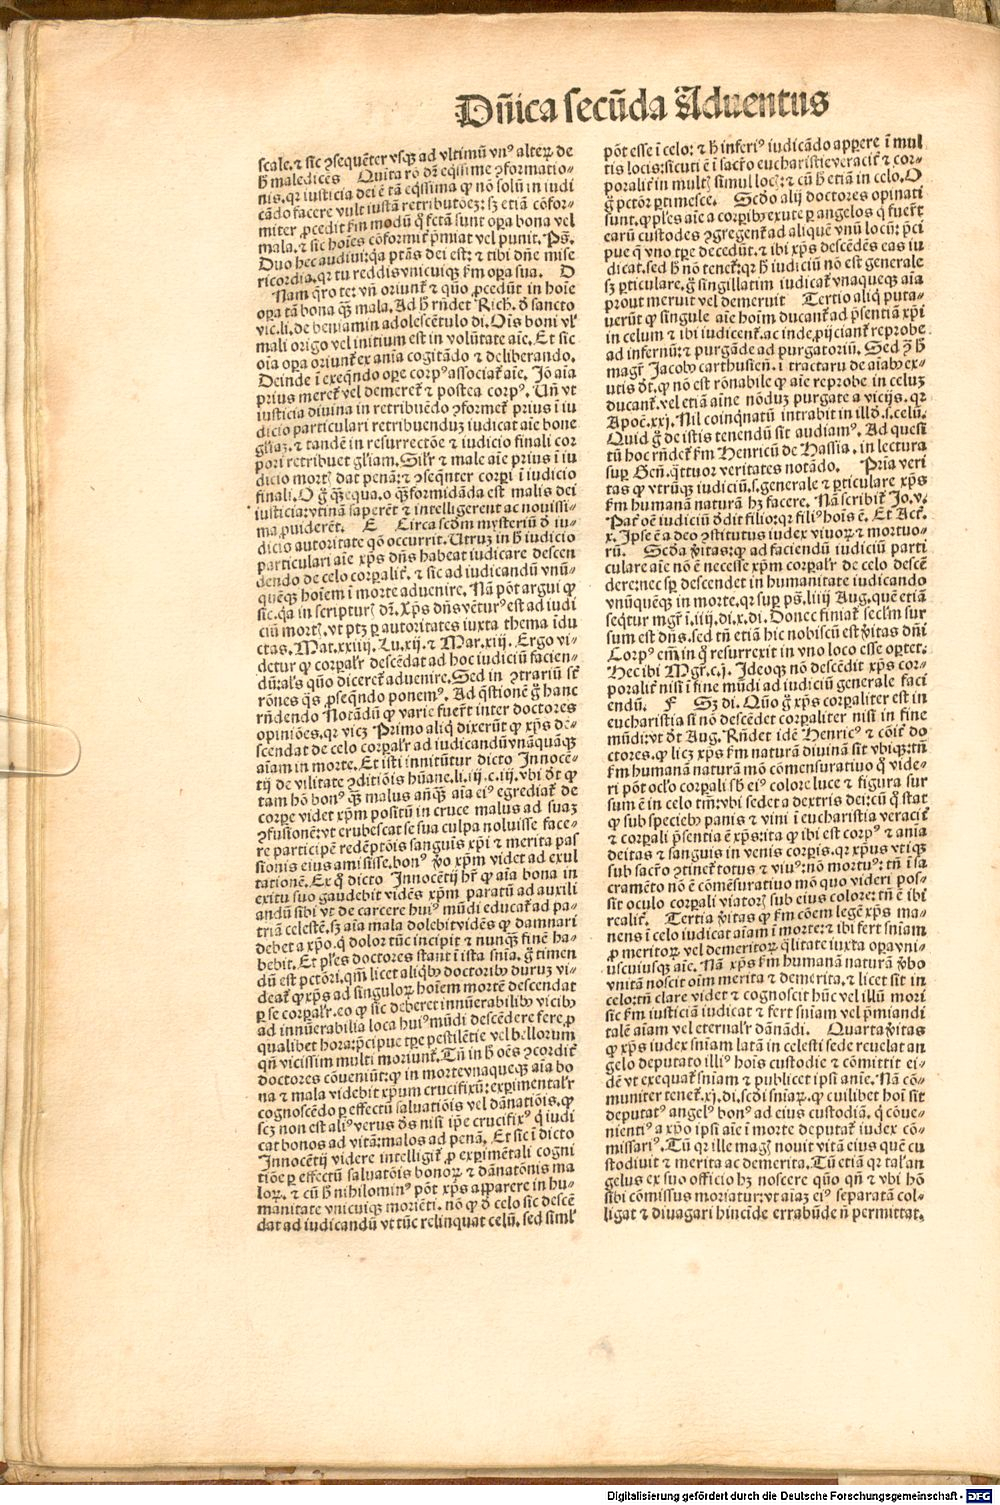 Dñica secũda Aduentus
scale.⁊ sic ꝯsequẽter vsqꝫ ad vltimũ vnꝰ alteꝝ de
h̃ maledices Quita rõ dr̃ eq̃ssime ꝯformatio⸗
nis.qꝛ iusticia dei ẽ tã eq̃ssima ꝙ nõ solũ in iudi
cãdo facere vult iustã retributõeꝫ: sꝫ etiã cõfor⸗
miter ꝓcedit ẜm modũ q̃ fcã̃ sunt oꝑa bona vel
mala.⁊ sic hoĩes cõformiẽ p̃miat vel punit. Ps̃.
Duo hec audiui: qꝛ ptãs dei est: ⁊ tibi dñe mise
ricordia.qꝛ tu reddis vnicuiqꝫ ẜm oꝑa sua. D
Nam q̃ro te: vñ oriunt᷑ ⁊ quõ ꝓcedũt in hoĩe
oꝑa tã bona qꝫ̃ mala. Ad h̃ rñdet Rich. d̃ sancto
vic.li. de beniamin adolescẽtulo di. Oĩs boni vl̕
mali origo vel initium est in volũtate aĩe. Et sic
oĩa oꝑa oriunt᷑ ex aĩa cogitãdo ⁊ deliberando.
Deinde ĩ exeq̃ndo oꝑe corpꝰ associat᷑ aĩe. Jõ aĩa
prius meret᷑ vel demeret᷑ ⁊ postea corpꝰ. Vñ vt
iusticia diuina in retribuẽdo ꝯformet᷑ prius ĩ iu
dicio particulari retribuenduꝫ iudicat aĩe bone
gl̕iaꝫ. ⁊ tandẽ in resurrectõe ⁊ iudicio finali cor
pori retribuet gl̕iam. Sil̕r ⁊ male aĩe prius ĩ iu
dicio morꝭ dat penã: ⁊ ꝯseq̃nter corꝑi ĩ iudicio
finali. O g̃ qꝫ̃equa.o qꝫ̃formidãda est malis dei
iusticia: vtinã saperẽt ⁊ intelligerent ac nouissi⸗
ma ꝓuiderẽt. E Circa scd̃m mysteriũ d̃ iu⸗
dicio autoritate qõ occurrit. Utruꝫ in h̃ iudicio
particulari aĩe xp̃s dñs habeat iudicare descen
dendo de celo corꝑalit᷑. ⁊ sic ad iudicandũ vnũ⸗
quẽqꝫ hoĩem ĩ morte aduenire. Nã põt argui ꝙ
sic.q̃a in scripturꝭ dr̃. Xp̃s dñs vẽturꝰ est ad iudi
ciũ morꝭ. vt ptꝫ ꝑ autoritates iuxta thema ĩdu
ctas. Mat.xxiiij. Lu.xij.⁊ Mar.xiij. Ergo vi⸗
detur ꝙ corꝑal̕r descẽdat ad hoc iudiciũ facien⸗
dũ: al̕s quõ diceret᷑ aduenire. Sed in ꝯtrariũ st̃
rõnes q̃s ꝓseq̃ndo ponemꝰ. Ad q̃stionẽ g̃ hanc
rñdendo Notãdũ ꝙ varie fuer̃t inter doctores
opiniões.qꝛ vicꝫ Primo aliq̃ dixerũt ꝙ xp̃s de⸗
scendat de celo corꝑal̕r ad iudicandũ vnãquãqꝫ
aĩam in morte. Et isti innitũtur dicto Innocẽ⸗
tij de vilitate ꝯditiõis hũane.li.iij.c.iij. vbi dt̃ ꝙ
tam hõ bonꝰ qꝫ̃ malus añqꝫ̃ aĩa eiꝰ egrediat᷑ de
corpe videt xp̃m positũ in cruce malus ad suaꝫ
ꝯfusionẽ: vt erubescat se sua culpa noluisse face⸗
re participẽ redẽptõis sanguis xp̃i ⁊ merita pas
sionis eius amisisse. bonꝰ v̕o xp̃m videt ad exul
tationẽ. Ex q̃ dicto Innocẽtij hr̃ ꝙ aĩa bona in
exitu suo gaudebit vidẽs xp̃m paratũ ad auxili
andũ sibi vt de carcere huiꝰ mũdi educat᷑ ad pa⸗
triã celestẽ. sꝫ aĩa mala dolebit vidẽs ꝙ damnari
debet a xp̃o.q̃ dolor tũc incipit ⁊ nunqꝫ̃ finẽ ha⸗
bebit. Et pl̕es doctores stant ĩ ista sn̕ia. g̃ timen
dũ est pctõri. qm̃ licet aliqꝫ doctoribꝫ duruꝫ vi⸗
deat᷑ ꝙ xp̃s ad singuloꝝ hoĩem mortẽ descendat
ꝑ se corꝑal̕r. eo ꝙ sic deberet innũerabilibꝫ vicibꝫ
ad innũerabilia loca huiꝰ mũdi descẽdere fere. ꝓ
qualibet hora: p̃cipue tꝑe pestilẽtie vel bellorum
qñ vicissim multi moriunt᷑. Tñ in h̃ oẽs ꝯcordit᷑
doctores cõueniũt: ꝙ in morte vnaqueqꝫ aĩa bo
na ⁊ mala videbit xp̃um crucifixũ: exꝑimental̕r
cognoscẽdo ꝑ effectũ saluatiõis vel dãnatiõis. ꝙ
scꝫ non est aliꝰ verus d̃s nisi ip̃e crucifixꝰ q̃ iudi
cat bonos ad vitã: malos ad penã. Et sic ĩ dicto
Innocẽtij videre intelligit᷑ ꝓ exꝑimẽtali cogni
tiõe ꝑ effectũ saluatõis bonoꝝ ⁊ dãnatõnis ma
loꝝ. ⁊ cũ h̃ nihilominꝰ põt xp̃s apparere in hu⸗
manitate vnicuiqꝫ moriẽti. nõ ꝙ d̃ celo sic descẽ
dat ad iudicandũ vt tũc relinquat celũ. sed siml̕
põt esse ĩ celo: ⁊ h̃ inferiꝰ iudicãdo apꝑere ĩ mul
tis locis: sicuti ẽ ĩ sacr̃o eucharistie veracit᷑ ⁊ cor⸗
poralit᷑ in multꝭ simul locꝭ: ⁊ cũ h̃ etiã in celo. O
g̃ pctõr ꝑtimesce. Scd̃o alij doctores opinati
sunt. ꝙ pl̕es aĩe a corꝑibꝫ exute ꝑ angelos q̃ fuer̃t
earũ custodes ꝯgregent᷑ ad aliquẽ vnũ locũ: p̃ci
pue q̃ vno tꝑe decedũt. ⁊ ibi xp̃s descẽdẽs eas iu
dicat. sed h̃ nõ tenet᷑: qꝛ h̃ iudiciũ nõ est generale
sꝫ ꝑticulare. g̃ singillatim iudicat᷑ vnaqueqꝫ aĩa
prout meruit vel demeruit Tertio aliq̃ puta⸗
uerũt ꝙ singule aĩe hoĩm ducant᷑ ad p̃sentiã xp̃i
in celum ⁊ ibi iudicent᷑. ac inde ꝓijciant᷑ reprobe
ad infernũ: ⁊ purgãde ad purgatoriũ. Sed ꝯ h̃
magr̃ Jacobꝰ carthusieñ. ĩ tractatu de aĩabꝫ ex⸗
utis dt̃. ꝙ nõ est rõnabile ꝙ aĩe reprobe in celuꝫ
ducant᷑. vel etiã aĩne nõduꝫ purgate a vicijs. qꝛ
Apoc̃.xxj. Nil coinq̃natũ intrabit in illd̃.s.celũ.
Quid g̃ de istis tenendũ sit audiamꝰ. Ad quesi
tũ hoc rñdet᷑ ẜm Henricũ de Hassia. in lectura
suꝑ Geñ. q̃ttuor veritates notãdo. Prĩa veri
tas ꝙ vtrũqꝫ iudiciũ.s.generale ⁊ ꝑticulare xp̃s
ẜm humanã naturã hꝫ facere. Nã scribit᷑ Jo.v.
Pat᷑ oẽ iudiciũ d̃dit filio: qꝛ filiꝰ hoĩs ẽ. Et Act᷑.
x. Ip̃e ẽ a deo ꝯstitutus iudex viuoꝝ ⁊ mortuo⸗
rũ. Scd̃a v̕itas: ꝙ ad faciendũ iudiciũ parti
culare aĩe nõ ẽ necesse xp̃m corꝑal̕r de celo descẽ
dere: nec sꝑ descendet in humanitate iudicando
vnũquẽqꝫ in morte. qꝛ suꝑ ps̃.liiij Aug. quẽ etiã
seq̃tur mgr̃ ĩ.iiij.di.x.di. Donec finiat᷑ secl̕m sur
sum est dñs. sed tñ etiã hic nobiscũ est v̕itas dñi
Corpꝰ em̃ in q̃ resurrexit in vno loco esse oportet.
Hec ibi Mgr̃.c.j. Ideoqꝫ nõ descẽdit xp̃s cor⸗
poralit᷑ nisi ĩ fine mũdi ad iudiciũ generale faci
endũ. F Sꝫ di. Quõ g̃ xp̃s corꝑaliter est in
eucharistia si nõ descẽdet corꝑaliter nisi in fine
mũdi: vt dt̃ Aug. Rñdet idẽ Henricꝰ ⁊ cõit᷑ do
ctores. ꝙ licꝫ xp̃s ẜm naturã diuinã sit vbiqꝫ: tñ
ẜm humanã naturã mõ cõmensuratiuo q̃ vide⸗
ri põt ocl̕o corꝑali sb̃ eiꝰ colore luce ⁊ figura sur
sum ẽ in celo tm̃: vbi sedet a dextris dei: cũ q̃ stat
ꝙ sub speciebꝫ panis ⁊ vini ĩ eucharistia veracit᷑
⁊ corꝑali p̃sentia ẽ xp̃s: ita ꝙ ibi est corpꝰ ⁊ anĩa
deitas ⁊ sanguis in venis corꝑis. qꝛ xp̃us vtiqꝫ
sub sacr̃o ꝯtinet᷑ totus ⁊ viuꝰ: nõ mortuꝰ: tñ ĩ sa
cramẽto nõ ẽ cõmẽsuratiuo mõ quo videri pos⸗
sit oculo corꝑali viatorꝭ sub eius colore: tñ ẽ ibi
realit᷑. Tertia v̕itas ꝙ ẜm cõem legẽ xp̃s ma⸗
nens ĩ celo iudicat aĩam ĩ morte: ⁊ ibi fert sn̕iam
ꝓ meritoꝝ vel demeritoꝝ q̃litate iuxta oꝑa vni⸗
uscuiusqꝫ aĩe. Nã xp̃s ẜm humanã naturã v̕bo
vnitã noscit oĩm merita ⁊ demerita. ⁊ licet sit in
celo: tñ clare videt ⁊ cognoscit hũc vel illũ mori
sic ẜm iusticiã iudicat ⁊ fert sn̕iam vel p̃miandi
talẽ aĩam vel eternal̕r dãnãdi. Quarta v̕itas
ꝙ xp̃s iudex sn̕iam latã in celesti sede reuelat an
gelo deputato illiꝰ hoĩs custodie ⁊ cõmittit ei⸗
dẽ vt exequat᷑ sn̕iam ⁊ publicet ipsi anĩe. Nã cõ⸗
muniter tenet᷑.xj.di.scd̃i sn̕iaꝝ. ꝙ cuilibet hoĩ sit
deputatꝰ angelꝰ bonꝰ ad eius custodiã. q̃ cõue⸗
nientiꝰ a xp̃o ipsi aĩe ĩ morte deputat᷑ iudex cõ⸗
missariꝰ. Tũ qꝛ ille magꝭ nouit vitã eius quẽ cu
stodiuit ⁊ merita ac demerita. Tũ etiã qꝛ tal̕ an
gelus ex suo officio hꝫ noscere quo qñ ⁊ vbi hõ
sibi cõmissus moriatur: vt aĩaꝫ eiꝰ separatã col⸗
ligat ⁊ diuagari hincĩde errabũde ñ permittat.
Digitalisierung gefördert durch die Deutsche Forschungsgemeinschaft - DFG